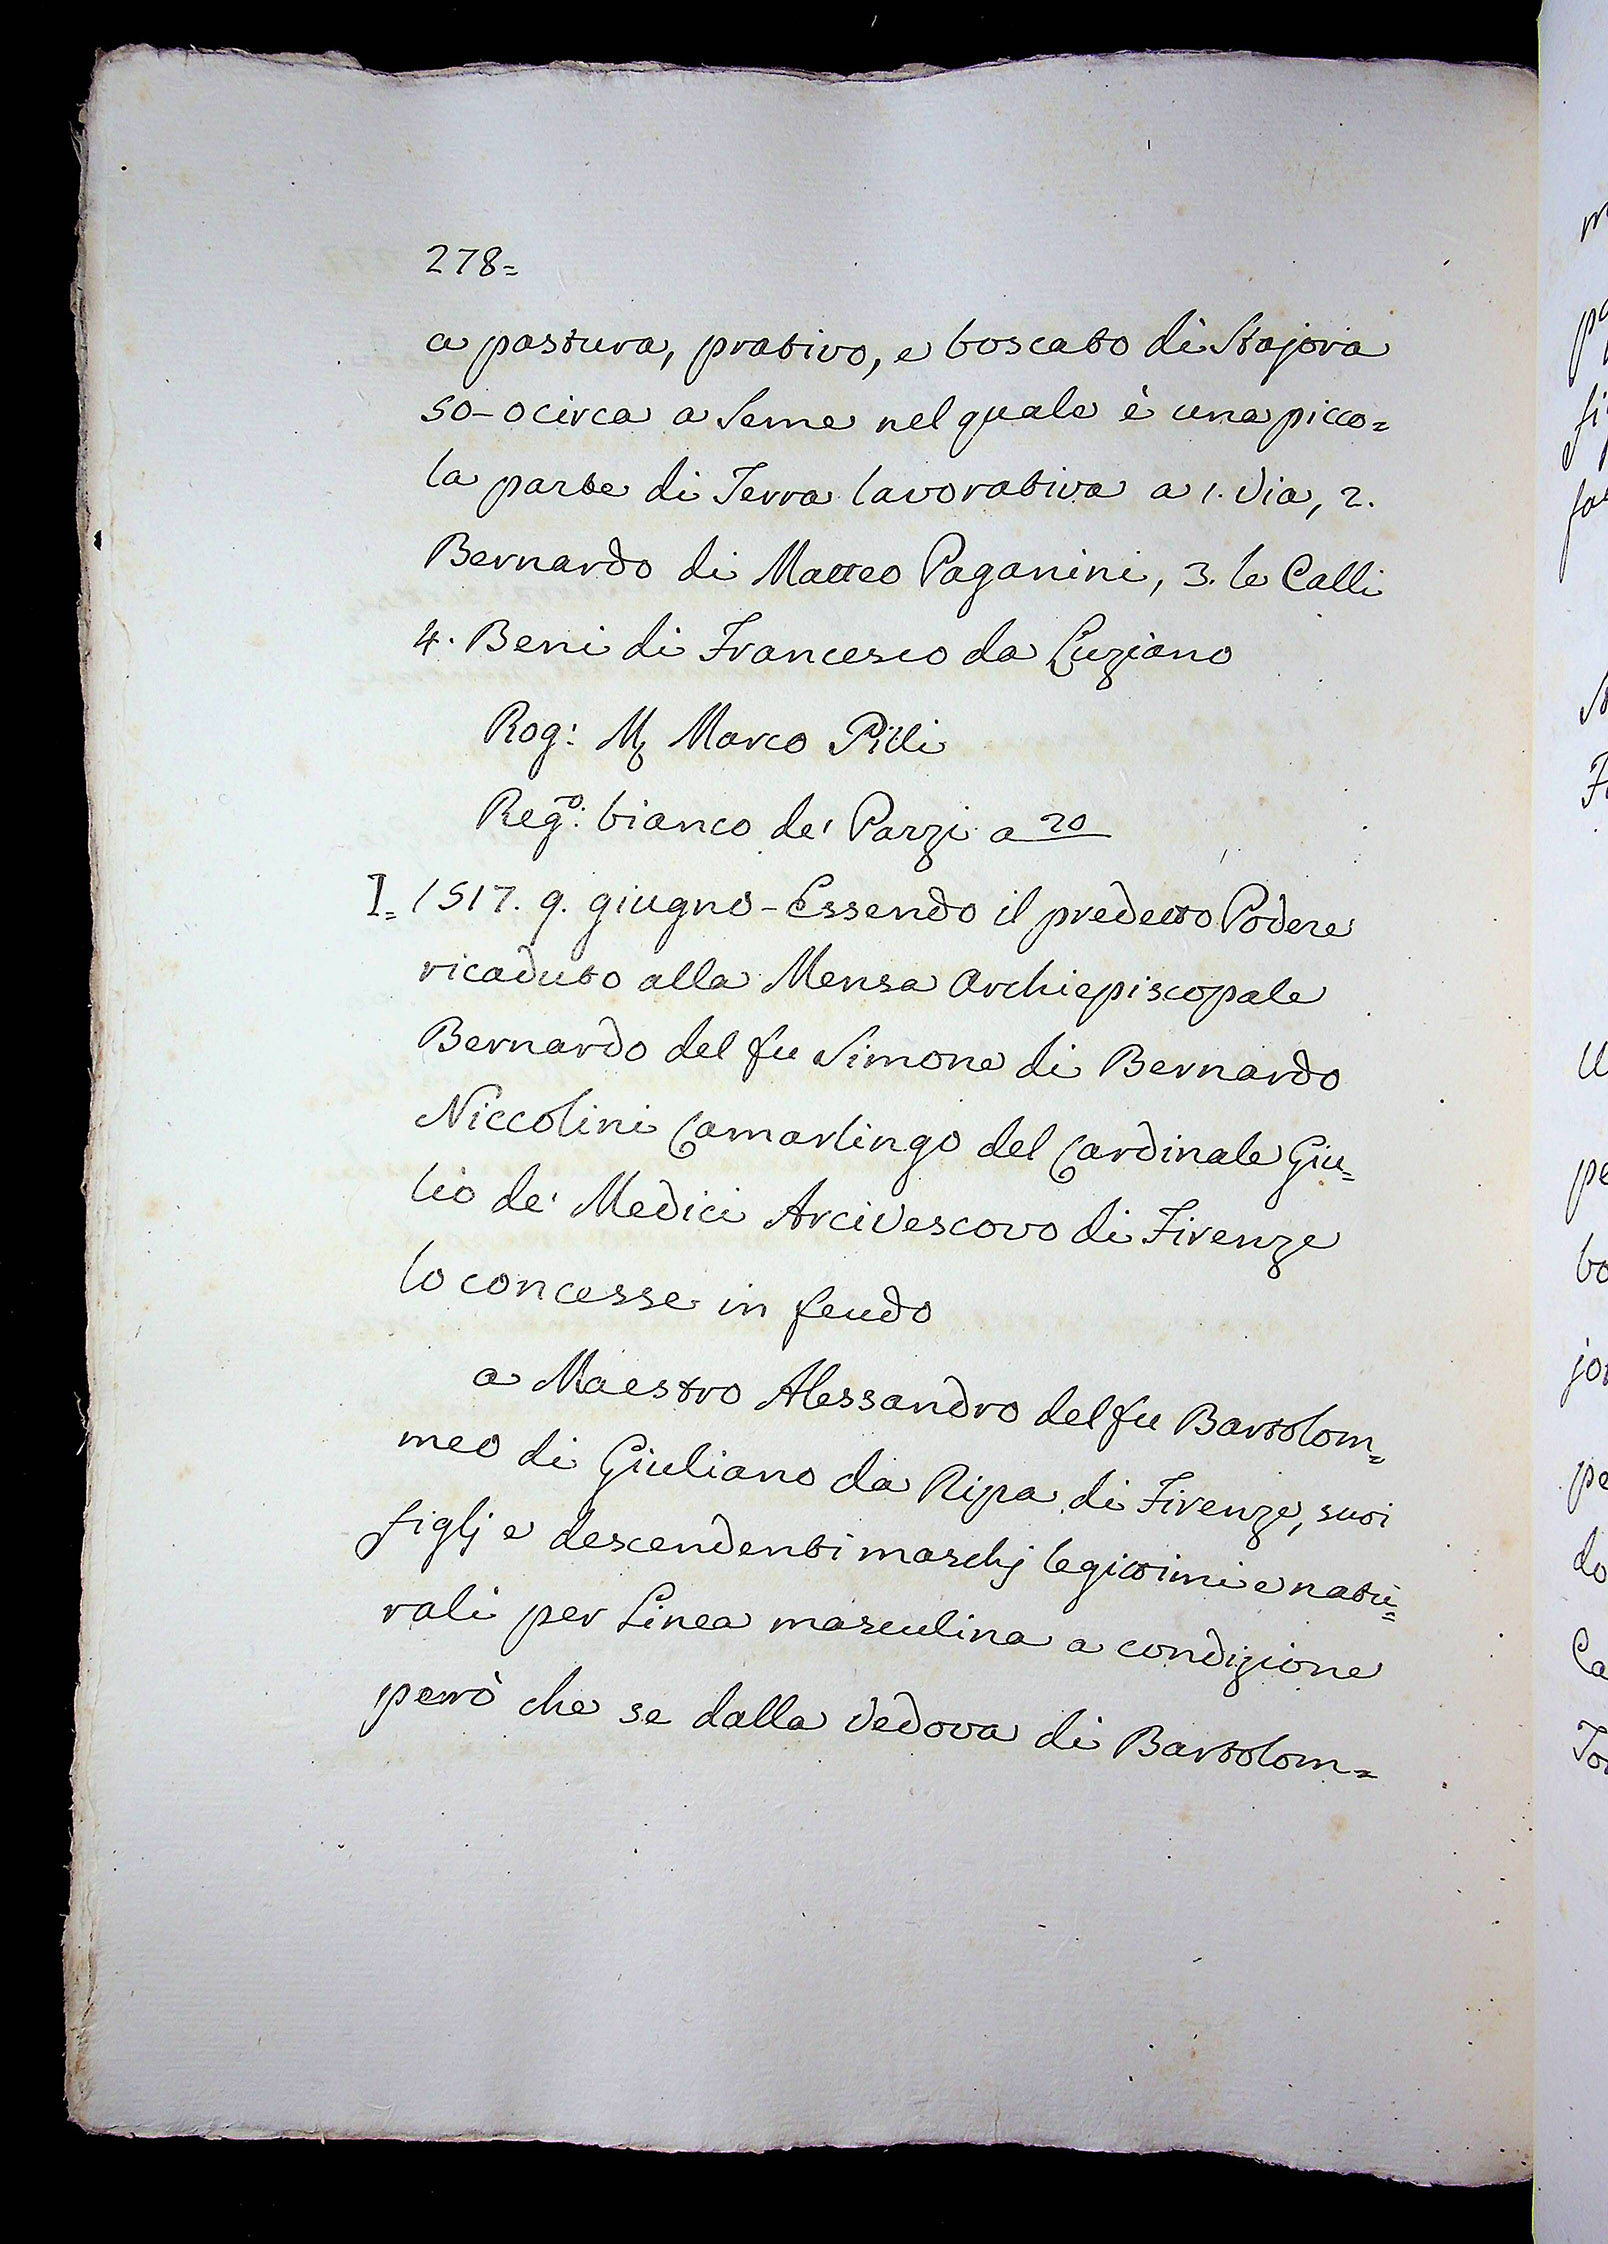 278=
a pastura, prativo, e boscato di Stajora
50-o circa a Seme nel quale è una picco=
la parte di Terra lavorativa a 1. Via, 2.
Bernardo di Matteo Paganini, 3. le Calli
4. Beni di Francesco da Luziano
Rog: M Marco Pilli
Reg.o: bianco de' Pazzi a 20
I= 1517. 9. giugno - Essendo il predetto Podere
ricaduto alla Mensa Archiepiscopale
Bernardo del fu Simone di Bernardo
Niccolini Camarlingo del Cardinale Giu=
lio de' Medici Arcivescovo di Firenze
lo concesse in feudo
a Maestro Alessandro del fu Bartolom=
meo di Giuliano da Ripa di Firenze, suoi
figlj e descendenti maschj legittimi e natu=
rali per Linea masculina a condizione
però che se dalla Vedova di Bartolom=